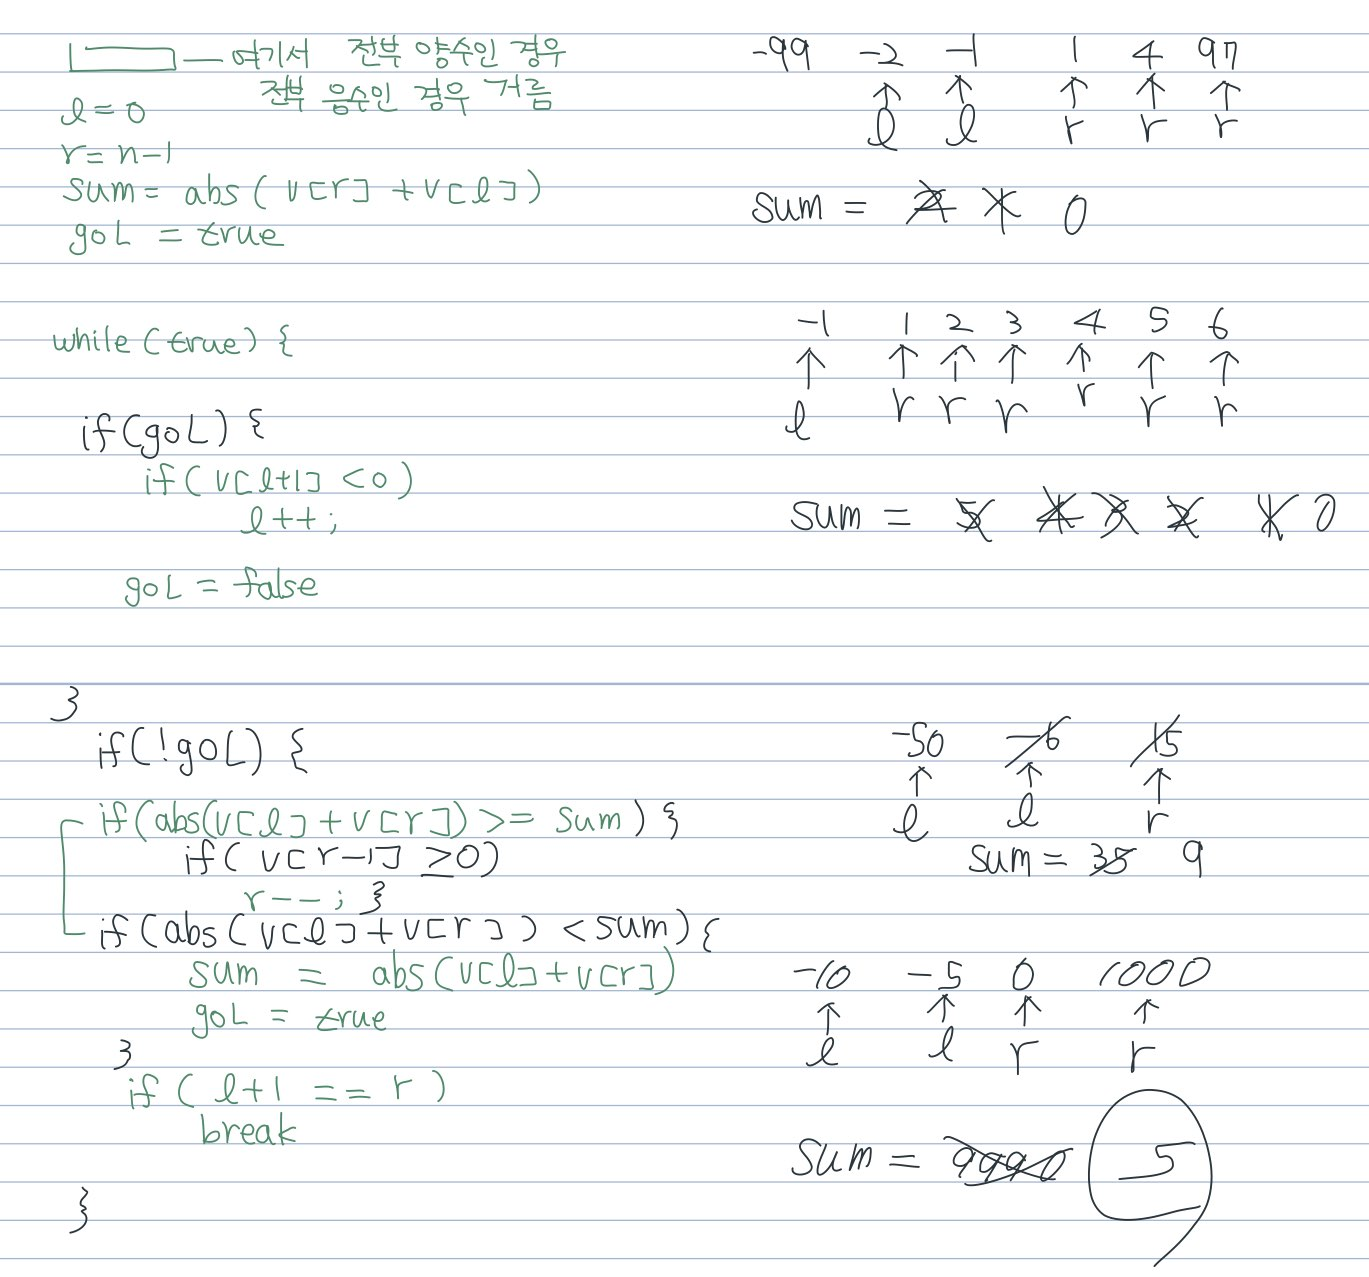 여기서 전부 양수인 경우
전부 음수인 경우 거름
l = 0
r = n-1
sum = abs ( v[r] + v[l] )
goL = true
while (true) {
if(goL) {
if( v[l+1] < 0 )
l++;
goL = false
}
if(!goL) {
if(abs(v[l] + v[r]) >= sum ) {
if( v[r-1] ≥0)
r--; }
if(abs( v[l]+v[r] ) < sum) {
sum = abs(v[l]+v[r])
goL = true
}
if ( l+1 == r )
break
}
-99 -2 -1 1 4 97
l l r r r
sum = 2 1 0
-1 1 2 3 4 5 6
l r r r r r r
sum = 5 4 3 2 1 0
-50 -6 15
l l r
sum = 35 9
-10 -5 0 1000
l l r r
sum = 9990 5